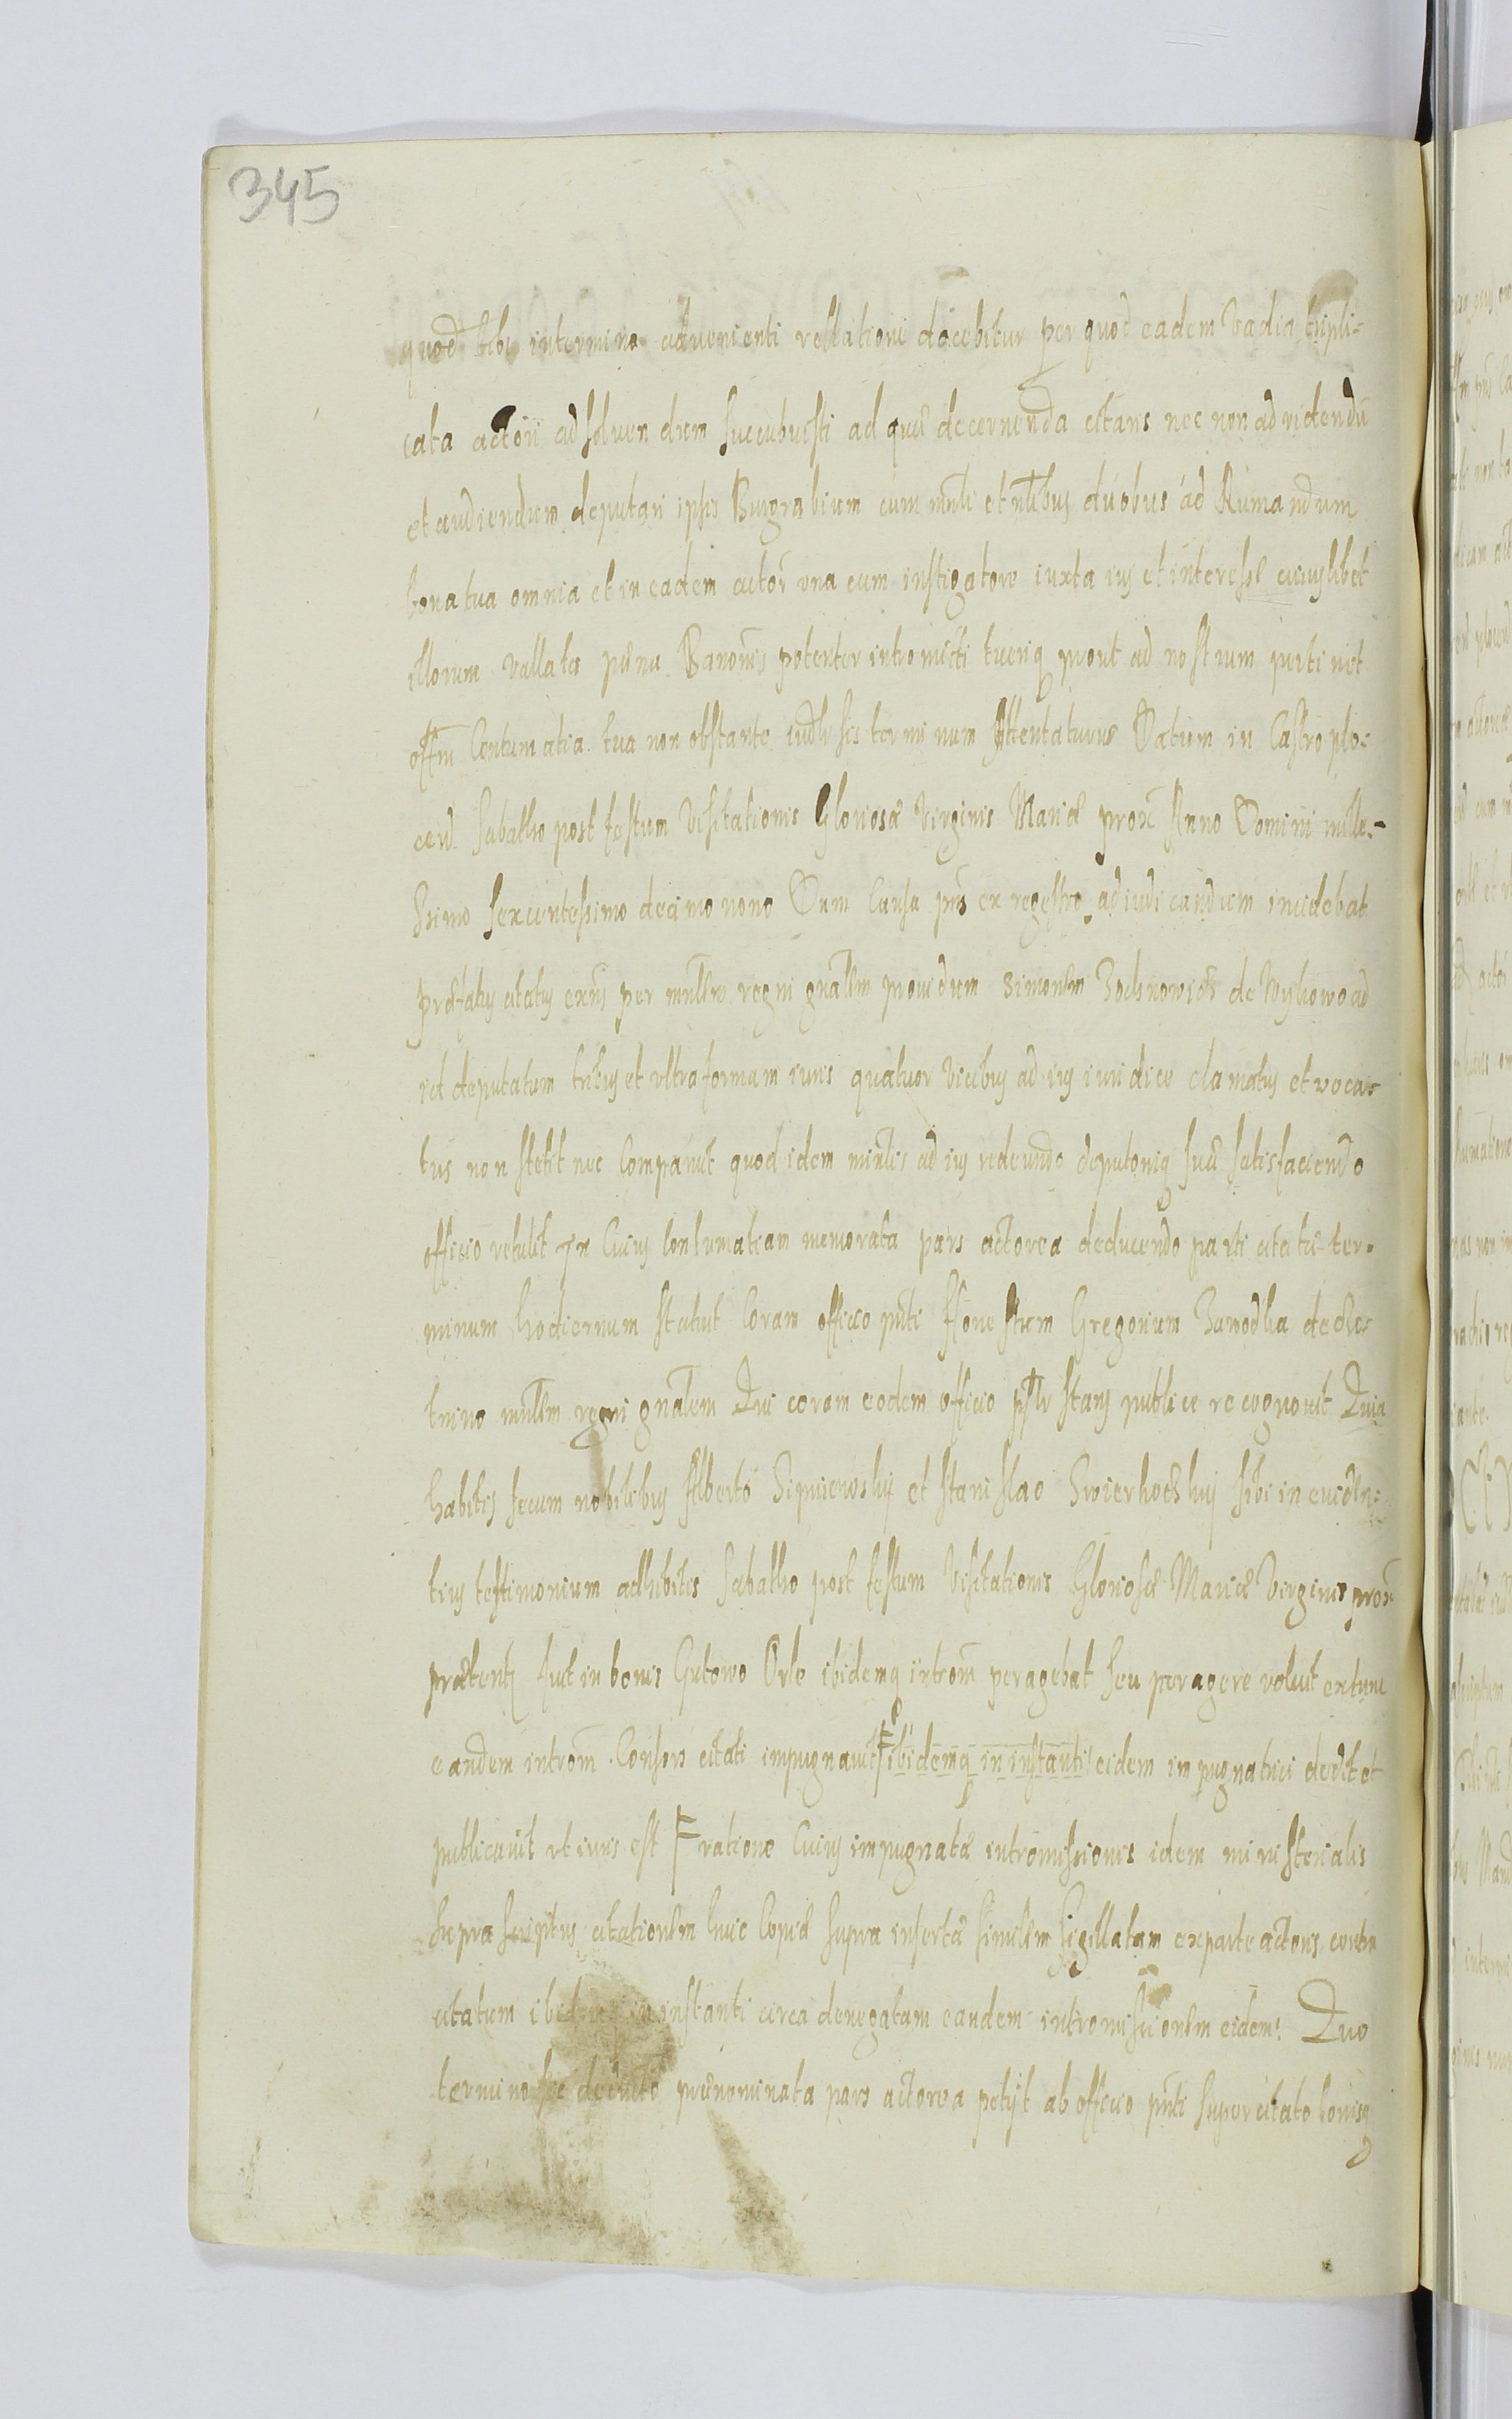 345
quod tibi in termino advenienti rellatione docebitur per quod eadem vadia tripli-
cata actori ad solvendum succubuisti ad quæ decernenda citaris nec non ad videndū
et audiendum deputari ipsis Burgrabium cum mnli et nlibus duobus ad Rumandum
bona tua omnia et in eadem actor una cum instigatore iuxta ius et interesse cuiuslibet
illorum vallata pæna Banonis potenter intromitti tueriq prout ad nostrum pertinet
offm Contumatia tua non obstante iudlr sis terminum Attentaturus Datum in Castro plo-
cen Sabatho post festum Visitationis Gloriosæ Virginis Mariæ prox Anno Domini mille-
ssimo sexcentessimo decimo nono Dum Causa pns ex regestro ad iudicandum incidebat
præfatus citatus exns per mnlem regni gnalem providum Simonem de Wykowo ad
id deputatum tribus et ultra formam iuris quatuor vicibus ad ius iuridice clamatus et voca-
tus non stetit nec Comparuit quod idem mnlis ad ius redeundo deputoniq suæ satisfaciendo
officio retulit In Cuius Contumatiam memorata pars actorea deducendo parti citatæ ter-
minum hodiernum statuit Coram officio pnti Honestum Gregorium de
mnlem regni gnalem Qui coram eodem officio pslr stans publice recognovit Quia
habitis secum nobilibus Alberto et Stanislao sibi in eviden-
tius testimonium adhibitis Sabatho post festum Visitationis Gloriosæ Mariæ Virginis prox
præterit fuit in bonis Gutowo Orle ibidemq introm peragebat seu peragere voluit extunc
eandem introm Consors citati impugnavit ibidemq in instanti eidem impugnatrici dedit et
publicavit ut iuris est ratione Cuius impugnatæ intromissionis idem ministerialis
supra scriptus citationem huic Copiæ supra insertæ similem sigillatam ex parte actoris contra
citatum ibidem in instanti circa denegatam eandem intromissionem eidem Quo
termino sic prænominata pars actorea petyt ab officio pnti super citato bonisq